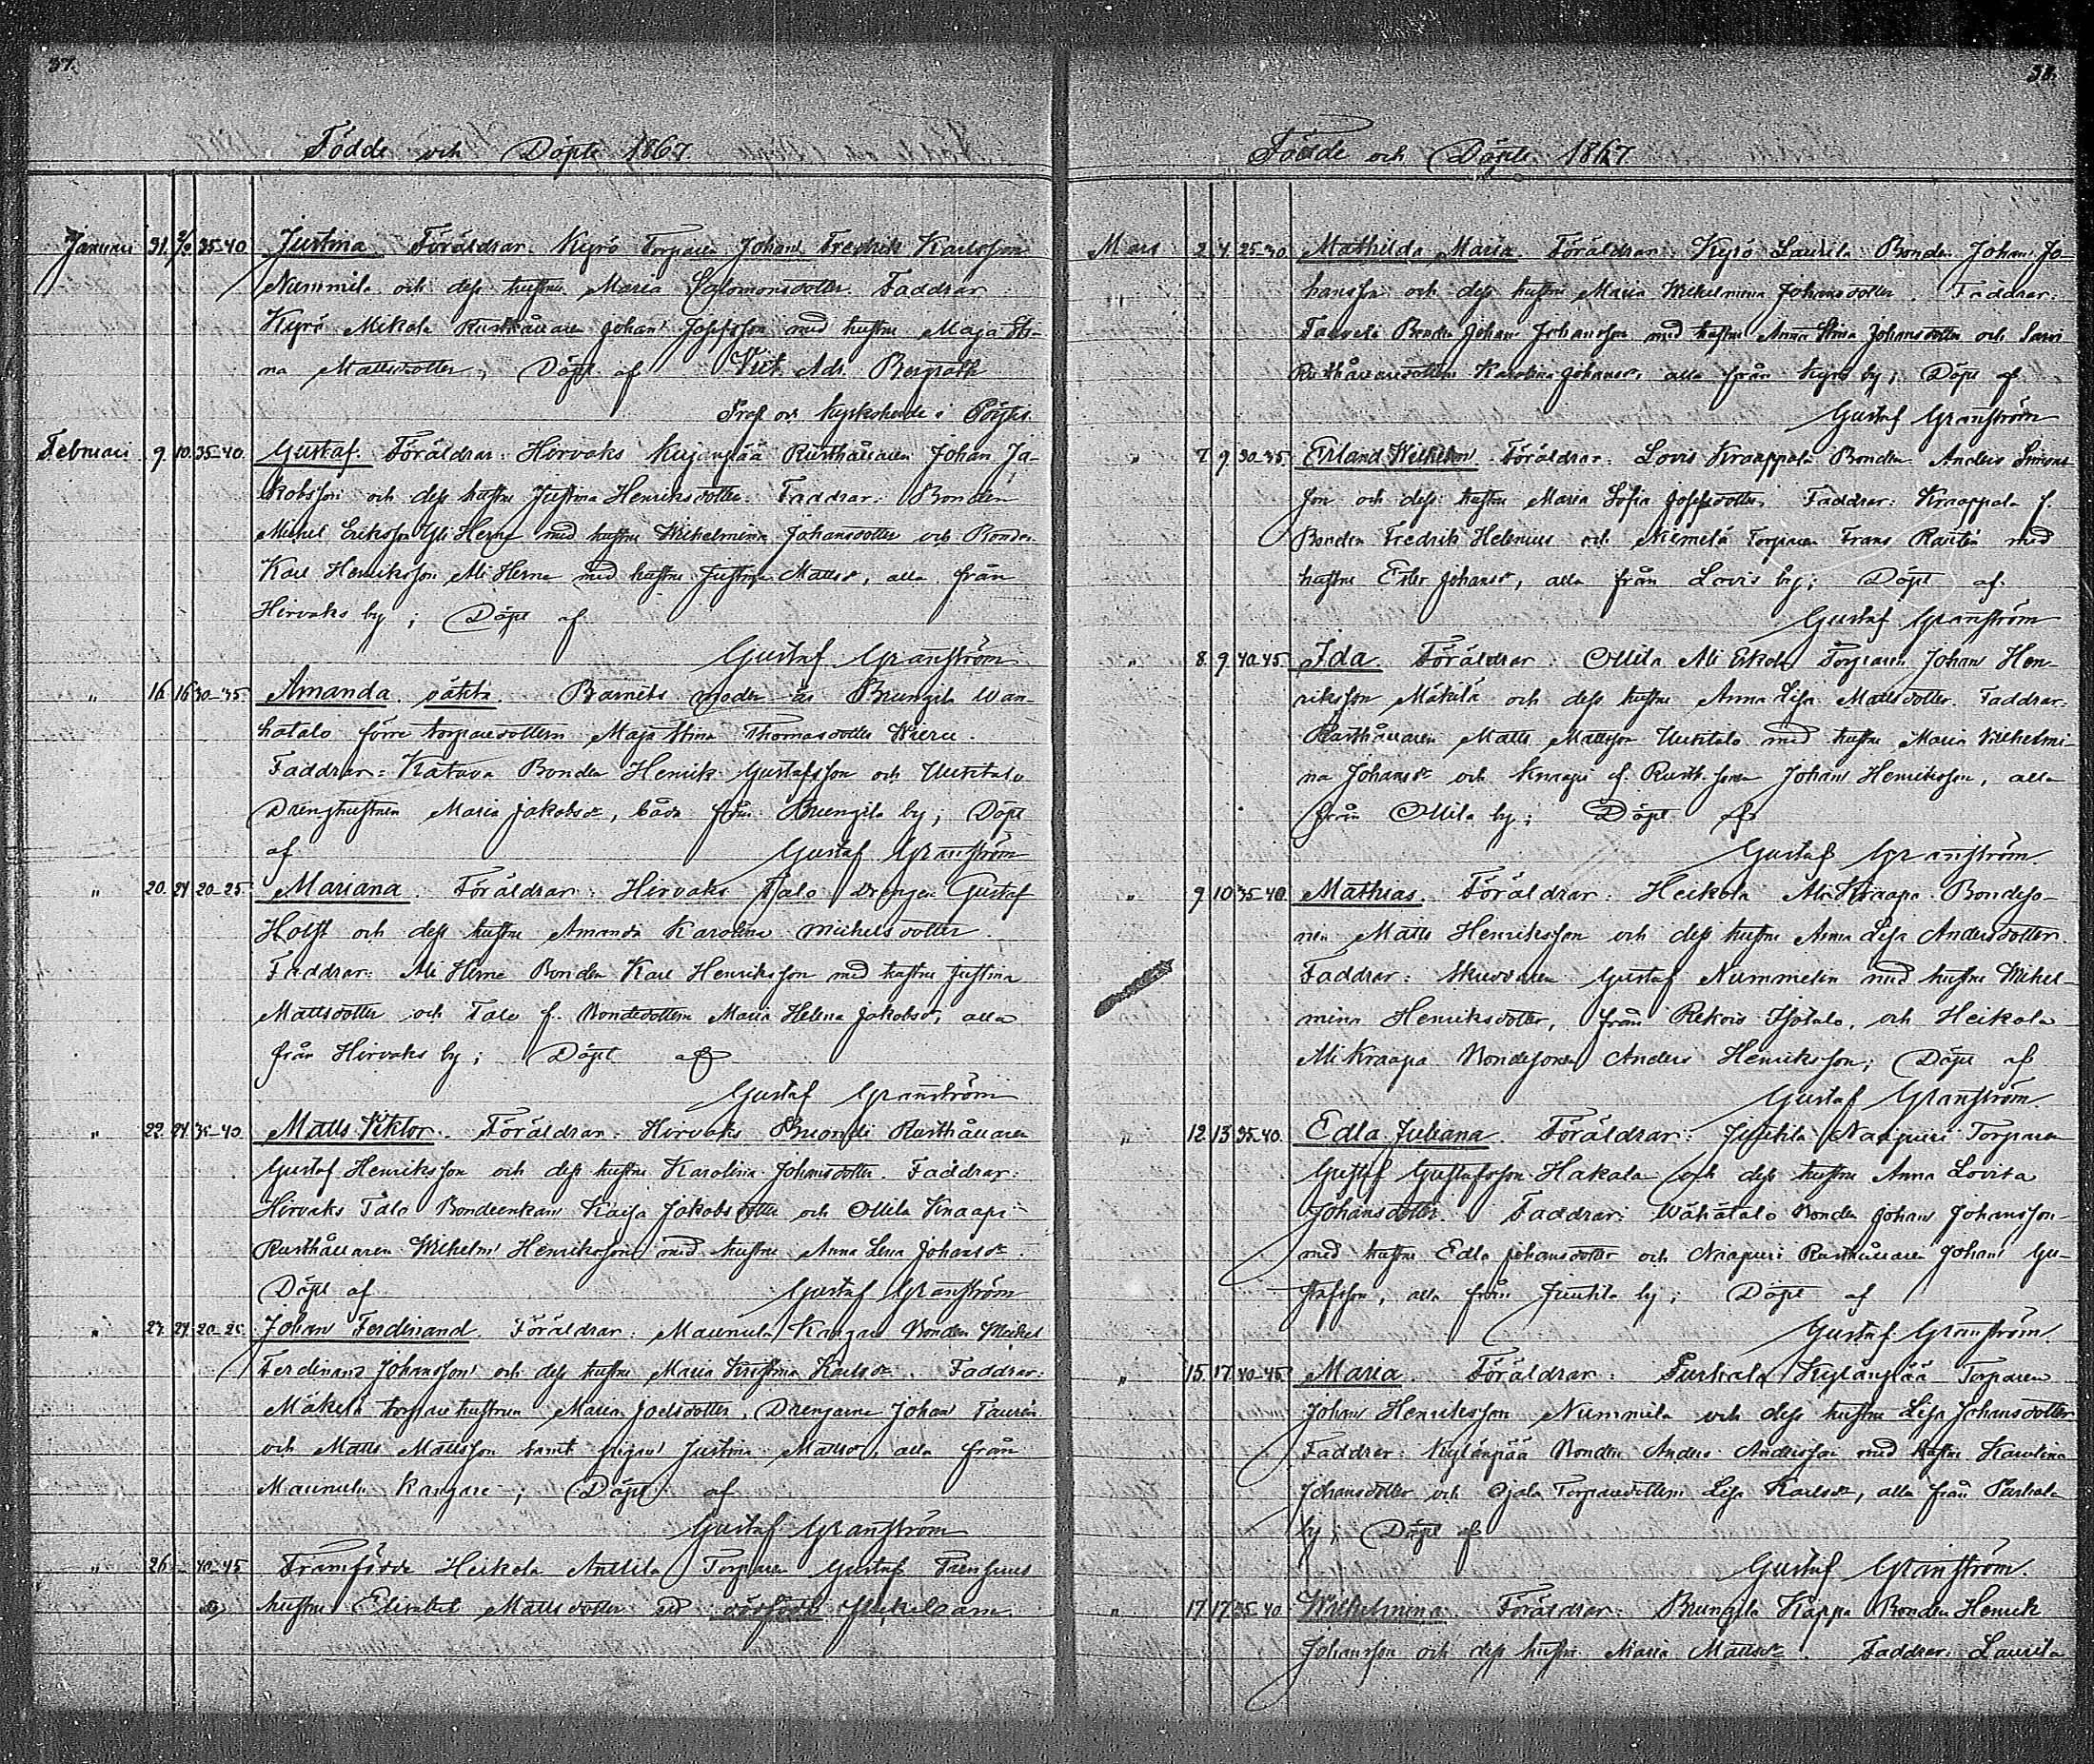 37.
Födde och Döpte 1867.
Januari 31. 3/2 35-40 Justina. Föräldrar: Kyrö Torparen Johan Fredrik Karlsson
Nummila och dess hustru Maria Salomonsdotter. Faddrar
Kyrö Mikola Rusthållaren Johan Josefsson med hustru Maja Sti-
na Mattsdotter; Döpt af Vict. Adr. Bergroth
Prost och kyrkoherde i Pöytis.
Februari 9. 10. 35-40. Gustaf. Föräldrar: Hirvaks Kujanpää Rusthållaren Johan Ja-
kobsson och dess hustru Justina Henriksdotter. Faddrar: Bonden
Michel Eriksson Yli Herne med hustru Wilhelmina Johansdotter och Bonden
Karl Henriksson Ali Herne med hustru Justina Mattsdr, alla från
Hirvaks by; Döpt af
Gustaf Granström
" 16. 16 30-35 Amanda oäkta Barnets moder är Brungila Wan-
hatalo förre torparedottern Maja Stina Thomasdotter Wieru.
Faddrar: Katava Bonden Henrik Gustafsson och Uusitalo
Drenghustrun Maria Jakobsdr, båda från Brungila by; Döpt
af Gustaf Granström
" 20. 24 20-25 Mariana. Föräldrar: Hirvaks Talo Drengen Gustaf
Holst och dess hustru Amanda Karolina Michelsdotter.
Faddrar: Ali Herne Bonden Karl Henriksson med hustru Justina
Mattsdotter och Talo f. Bondedottern Maria Helena Jakobsdr, alla
från Hirvaks by; Döpt af
Gustaf Granström
" 22. 24 35-40. Matts Viktor. Föräldrar: Hirvaks Rusthållaren
Gustaf Henriksson och dess hustru Karolina Johansdotter. Faddrar:
Hirvaks Talo Bondeenkan Kaisa Jakobsdotter och Ollila Knaapi
Rusthållaren Wilhelm Henriksson med hustru Anna Lena Johansdr.
Döpt af Gustaf Granström
" 20-25. Johan Ferdinand. Föräldrar: Maunula Kangare Bonden Michel
Ferdinand Johansson och dess hustru Maria Kristina Karlsdr. Faddrar:
Mäkelä torpare hustrun Maria Joelsdotter, Drengarne Johan Taurén
och Matts Mattsson samt pigan Justina Mattsdr, alla från
Maunula Kangare; Döpt af
Gustaf Granström
" 26. - 40-45 Framfödde Heikola Anttila Torparen Gustaf
hustru Elisabet Mattsdotter ett dödfödt flickebarn.
38.
Födde och Döpte 1867
Mars 2. 4. 25-30. Mathilda Maria. Föräldrar: Kyrö Laurila Bonden Johan Jo-
hansson och dess hustru Maria Wilhelmina Johansdotter. Faddrar:
Taavela Bonden Johan Johansson med hustru Anna Stina Johansdotter och
Rusthållaredottern Karolina Johansdr, alla från Kyrö by; Döpt af
Gustaf Granström
" 7. 9. 30-35. Erland Wilhelm. Föräldrar: Lovis Kraappala Bonden Anders Simons-
son och dess hustru Maria Sofia Josefsdotter. Faddrar: Kraappala f.
Bonden Fredrik Helenius och Niemelä Torparen Frans med
hustru Ester Johansdr, alla från Lovis by; Döpt af
Gustaf Granström
" 8. 9. 40-45. Ida. Föräldrar: Ollila Ali Eskola Torparen Johan Hen-
riksson Mäkilä och dess hustru Anna Lisa Mattsdotter. Faddrar:
Rusthållaren Matts Mattsson Uusitalo med hustru Maria Wilhelmi-
na Johansdr och Knaapi f. Rusth. sonen Johan Henriksson, alla
från Ollila by; Döpt af
Gustaf Granström
" 9. 10 35-40. Mathias. Föräldrar: Heikola Ali Kraapa Bondeso-
nen Matts Henriksson och dess hustru Anna Lisa Andersdotter.
Faddrar: Gustaf Nummelin med hustru Wilhel-
mina Henriksdotter, från Rekois Isotalo, och Heikola
Ali Kraapa Bondesonen Anders Henriksson; Döpt af
Gustaf Granström.
" 12. 13. 35-40. Edla Juliana. Föräldrar: Juutila Naapuri Torparen
Gustaf Gustafsson Hakala och dess hustru Anna Lovisa
Johansdotter. Faddrar: Wähätalo Bonden Johan Johansson
med hustru Edla Johansdotter och Naapuri Rusthållaren Johan Gu-
stafsson, alla från Juutila by; Döpt af
Gustaf Granström.
" 15. 17. 40-45. Maria. Föräldrar: Turkala Kylänpää Torparen
Johan Henriksson Nummila och dess hustru Lisa Johansdotter
Faddrar: Kylänpää Bonden Anders Andersson med hustru Karolina
Johansdotter och Ojala Torparedottern Lisa Karlsdr, alla från Turkala
by; Döpt af
Gustaf Granström.
" 17. 17. 35-40. Wilhelmina. Föräldrar: Brungila Kappa Bonden Henrik
Johansson och dess hustru Maria Mattsdr. Faddrar: Laurila